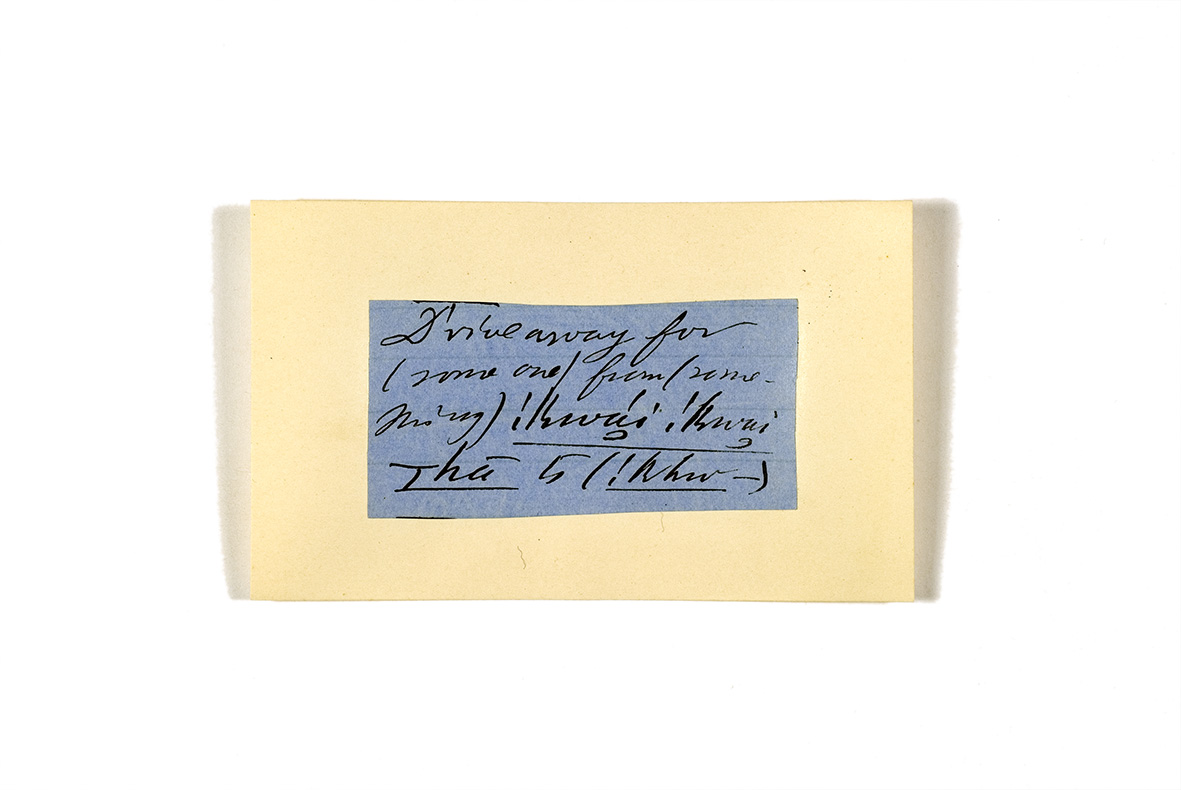 Drive away for
(some one) from (some-
thing) !kwái !kwai
Thā to (!khw-)